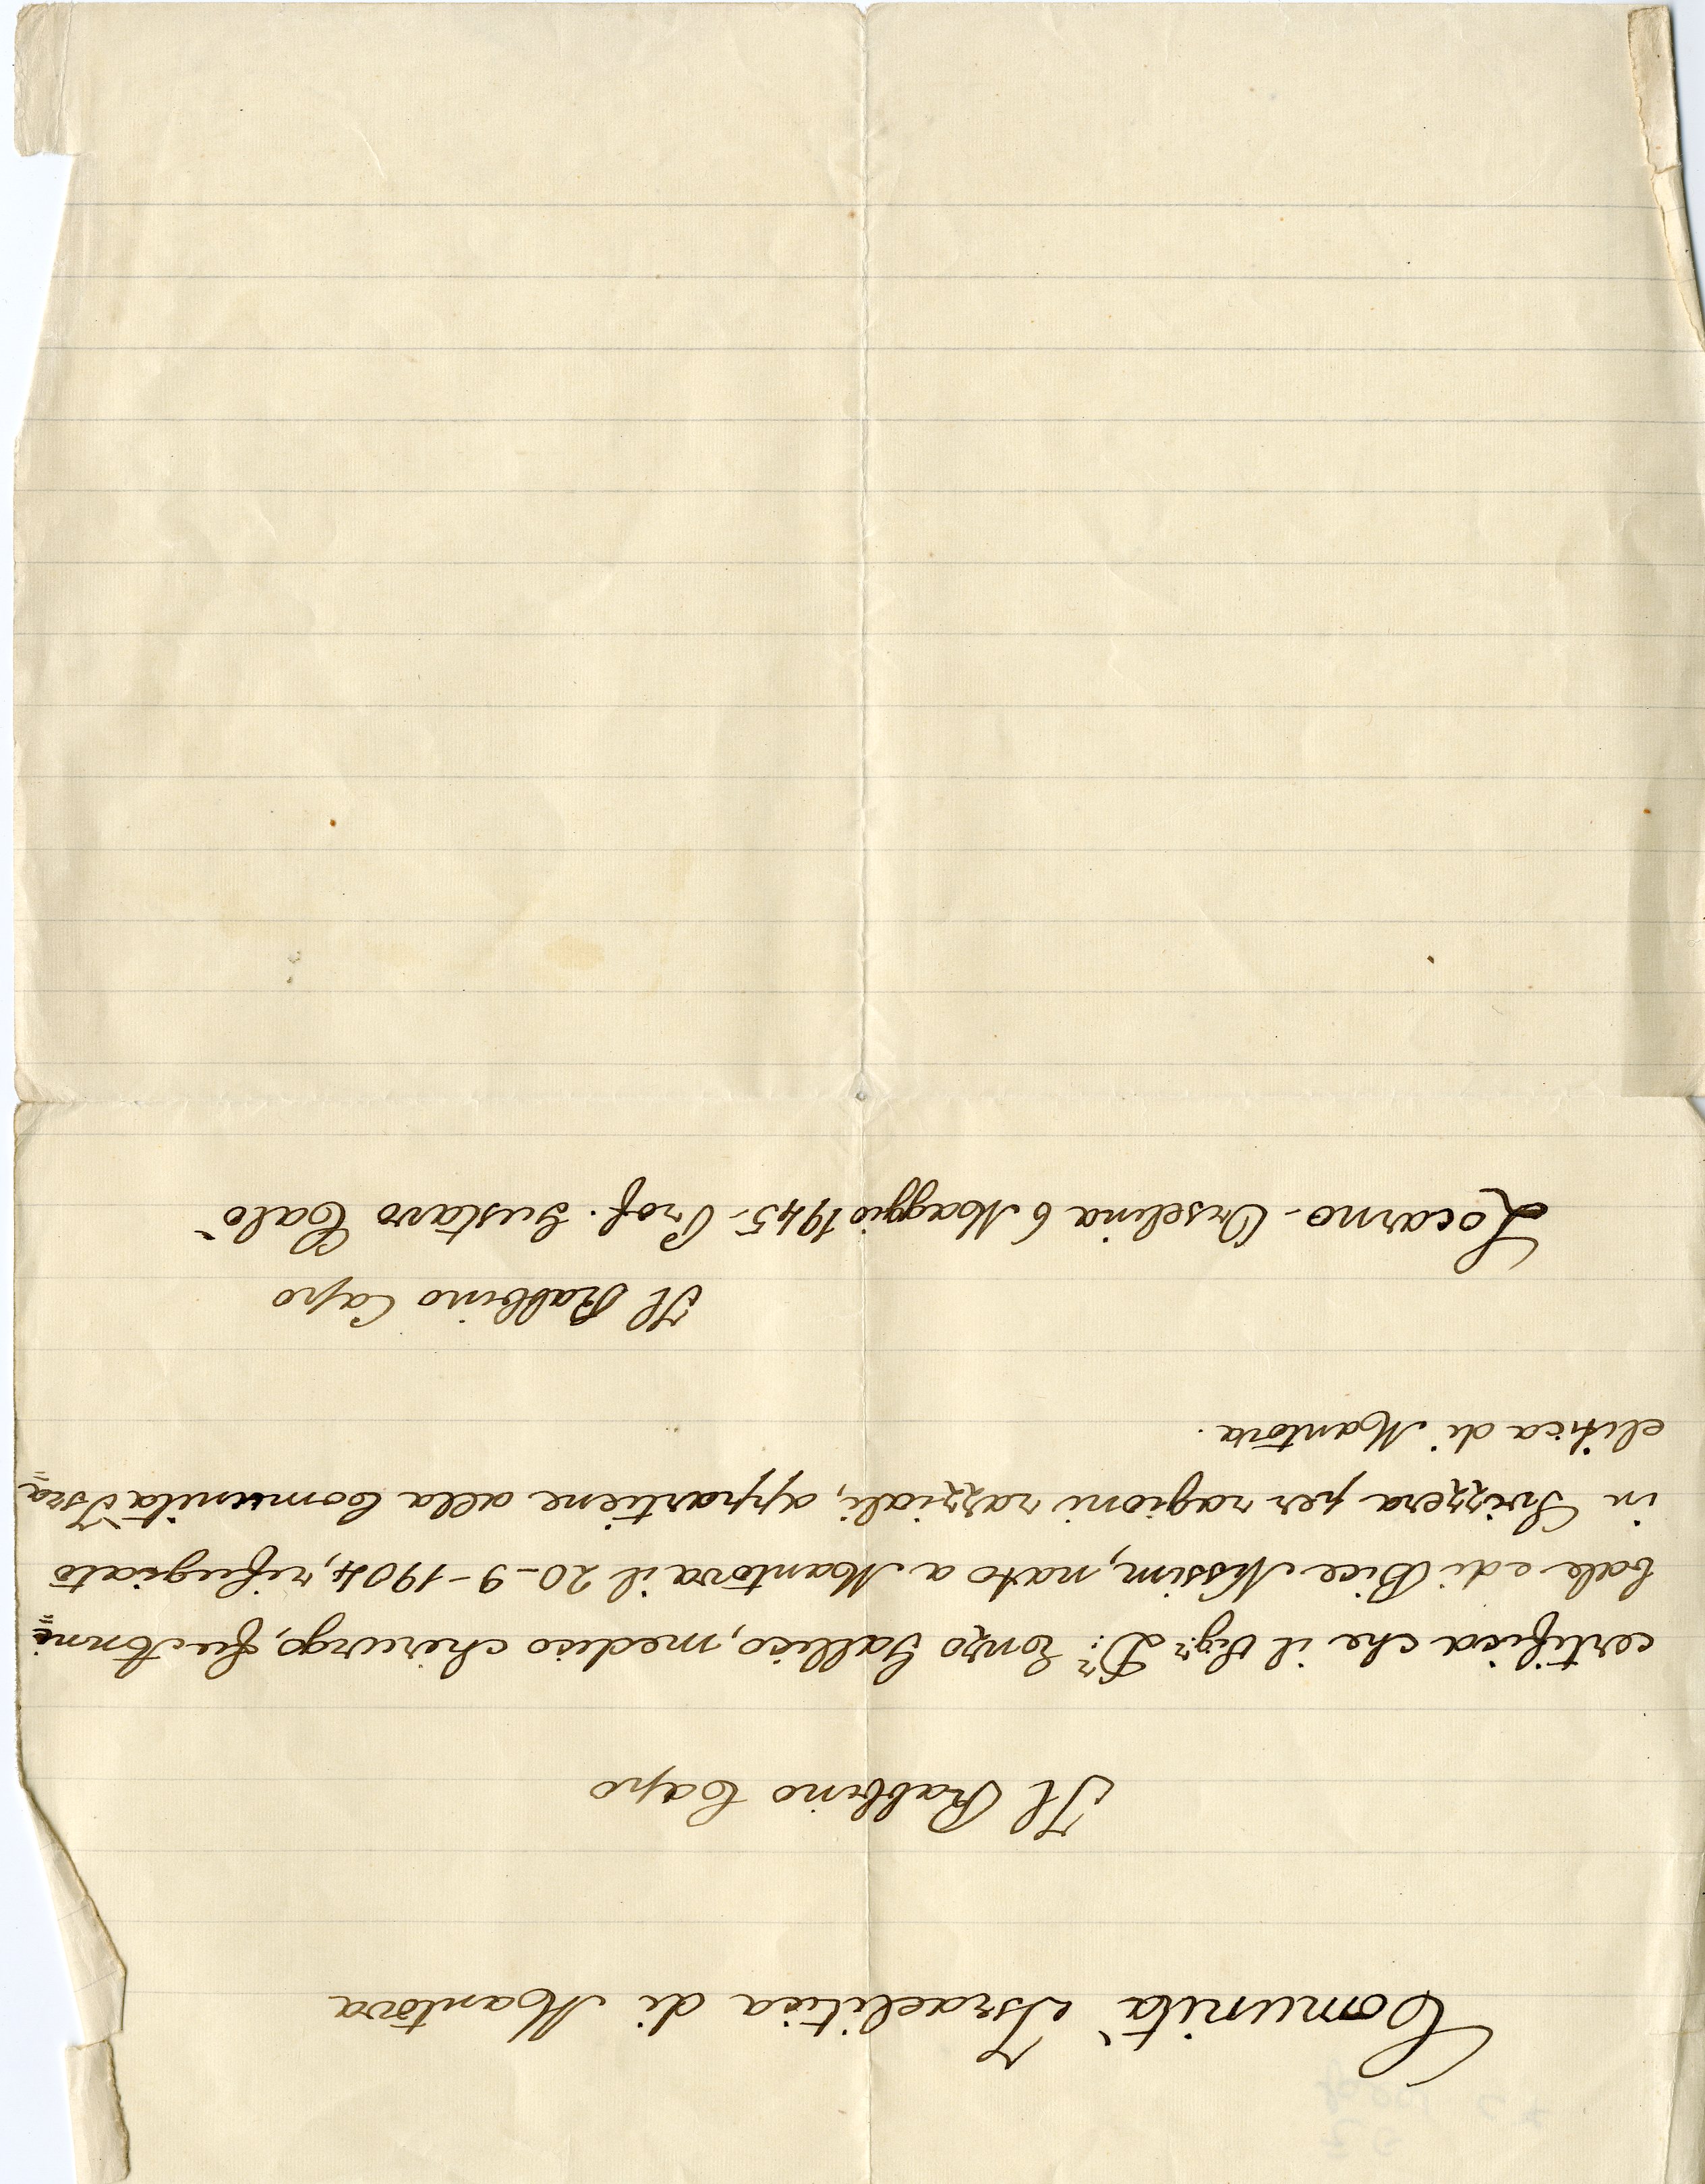 Comunità Israelitica di Mantova
Il Rabbino Capo
certifica che il Sigr Dr. Enzo Gallico, medico chirurgo, fu Anni=
bale e di Bice Nissim, nato a Mantova il 20-9-1904, rifugiato
in Svizzera per ragioni razziali, appartiene alla Comunità Isra=
elitica di Mantova.
Il Rabbino Capo
Locarno-Orselina 6 Maggio 1945- Prof. Gustavo Calò